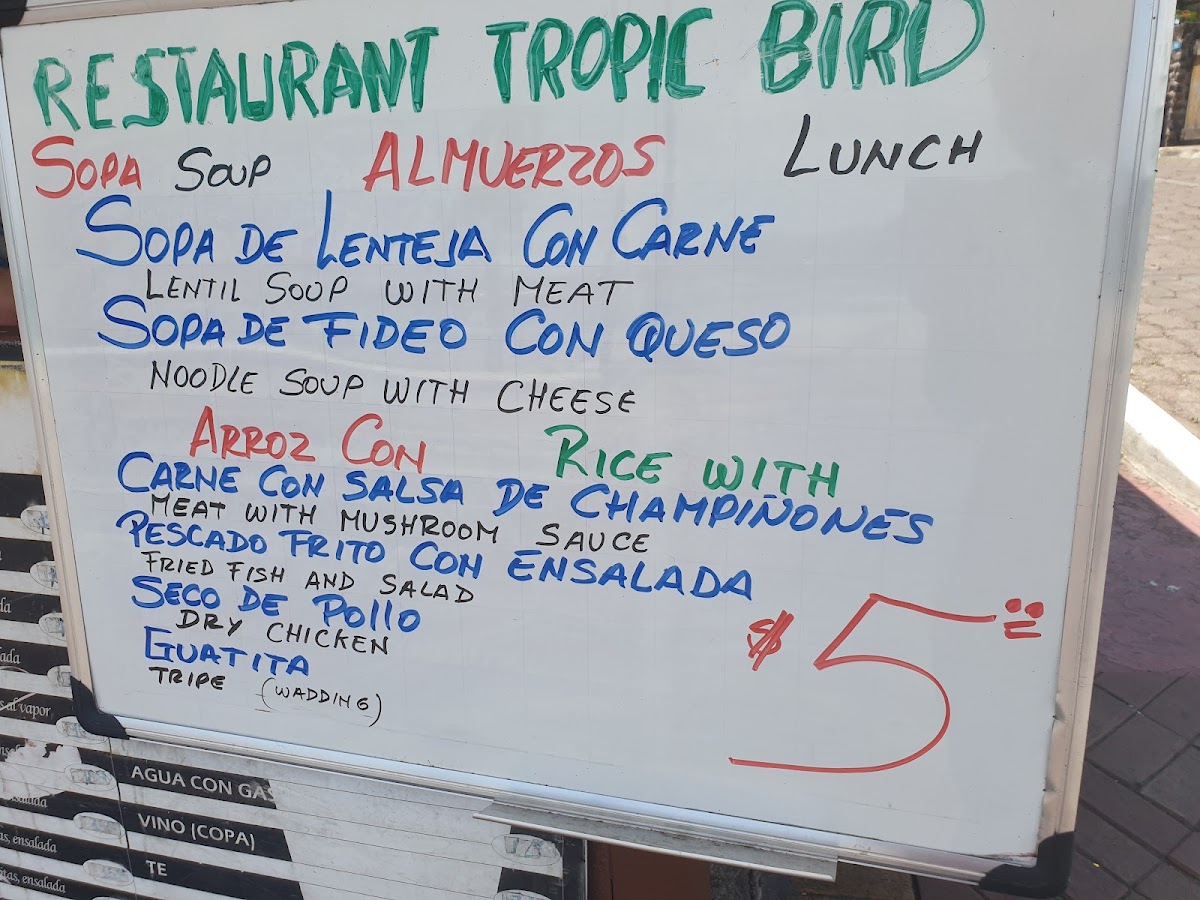 RESTAURANT TROPIC BIRD
SOPA SOUP ALMUERZOS LUNCH
SOPA DE LENTEJA CON CARNE
LENTIL SOUP WITH MEAT
SOPA DE FIDEO CON QUESO
NOODLE SOUP WITH CHEESE
ARROZ CON RICE WITH
CARNE CON SALSA DE CHAMPIÑONES
MEAT WITH MUSHROOM SAUCE
PESCADO FRITO CON ENSALADA
FRIED FISH AND SALAD
SECO DE POLLO
DRY CHICKEN
GUATITA
TRIPE (WADDING)
$5.00
al vapor
AGUA CON GAS
VINO (COPA)
ensalada
TE
ensalada